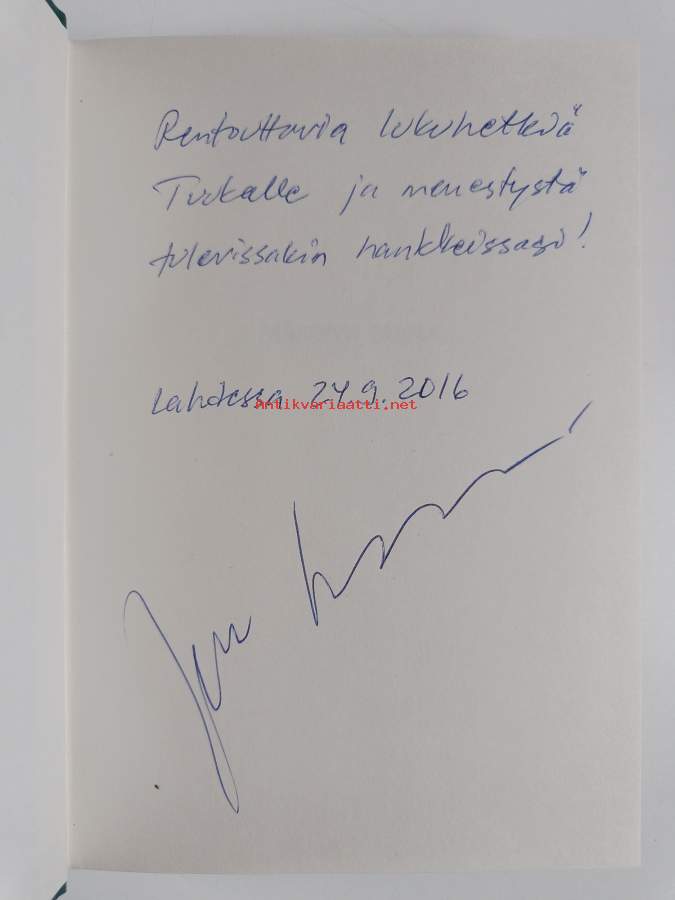 Rentouttavia lukuhetkiä
Tuukalle ja menestystä
tulevissakin hankkeissasi!
Lahdessa 24.9.2016
antikvariaatti.net